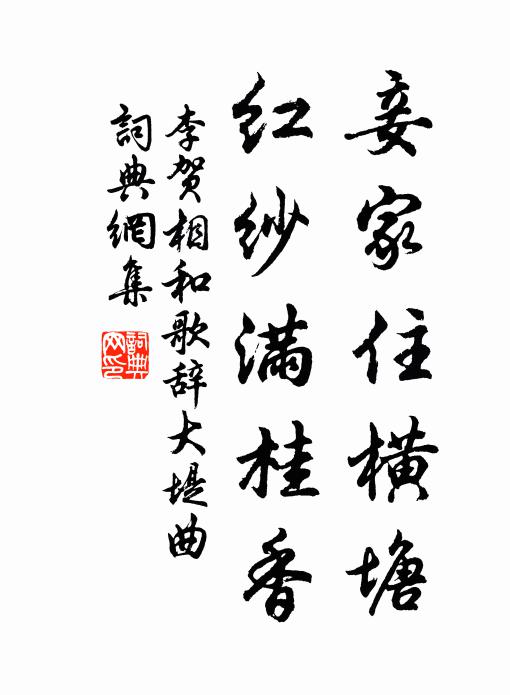 妾家住橫塘
红纱满桂香
李贺相和歌辞大堤曲
詞典網集
詞典网印